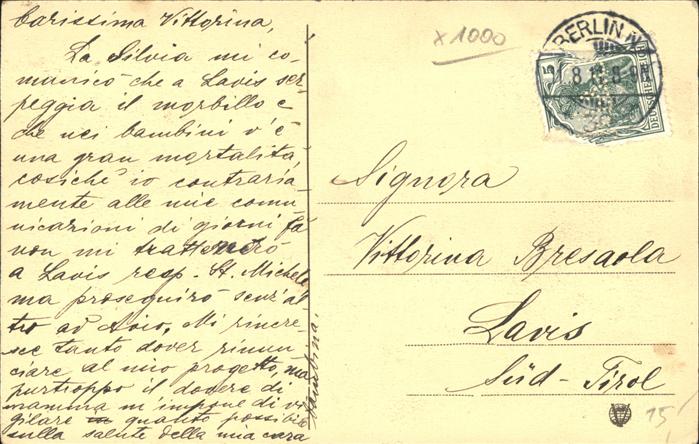 Carissima Vittorina,
La Silvia mi co-
municò che a Lavis ser-
peggia il morbillo e
che nei bambini v'è
una gran mortalità,
cosichè io contraria-
mente alle mie comu-
nicazioni di giorni fà
non mi tratterrò
a Lavis resp. St. Michele
ma proseguirò senz'al-
tro ad Avio. Mi rincre-
sce tanto dover rinun-
ciare al mio progetto, ma
purtroppo il dovere di
mamma m'impone di vi-
gilare quanto possibile
sulla salute della mia cara
bambina.
x 1000
BERLIN N
5
8.13.8-9N
DEUTSCHES
Signora
Vittorina Bresadola
Lavis
Süd-Tirol
15,